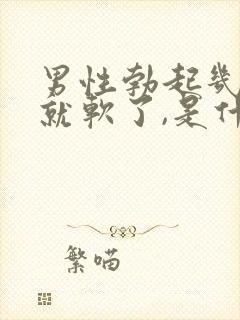 男性勃起幾
就軟了,是什
繁喵